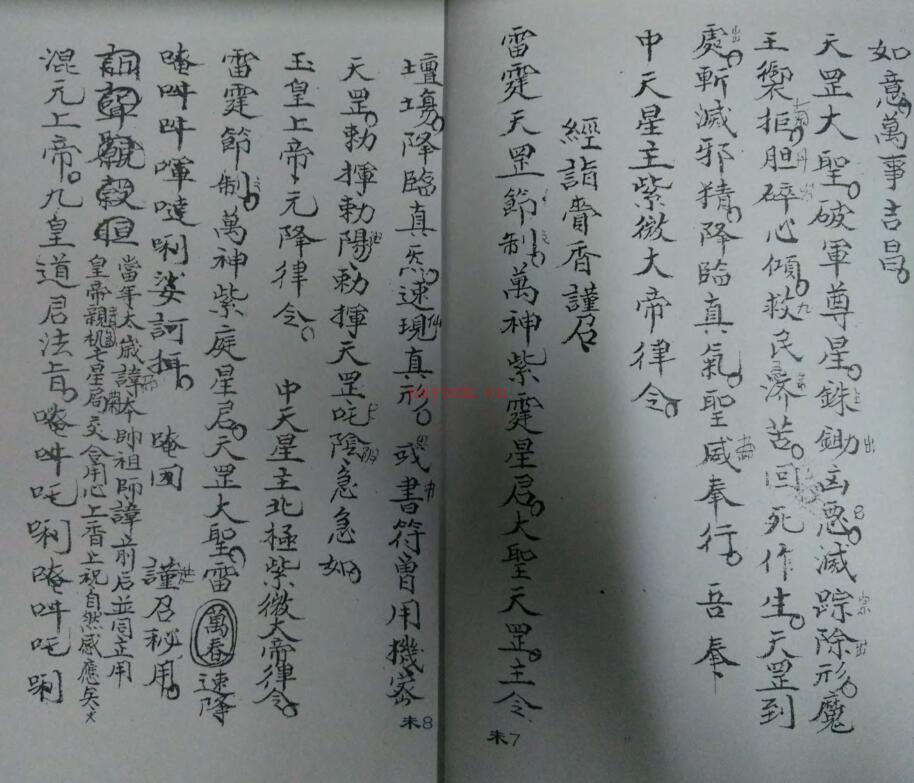 如意萬事吉昌
天罡大聖破軍尊星銖鋤凶惡滅踪除形魔
王禦拒胆碎心傾救民濟苦回死作生天罡到
處斬滅邪精降臨真氣聖威奉行吾奉
中天星主紫微大帝律令
經詣賫香謹召
雷霆天罡節制萬神紫霆星君大聖天罡主令
未7
壇場降臨真炁速現真形或書符曾用機密
天罡勅揮勅陽勅揮天罡吒陰急急如
玉皇上帝元降律令 中天星主北極紫微大帝律令
雷霆節制萬神紫庭星君天罡大聖雷 萬春 速降
唵吽吽嗱噠唎娑訶 唵 謹召秘用
當年太歲諱本師祖師諱前后並同立用
皇帝親机七星局交令用心上香上祝自然感應矣
混元上帝九皇道君法旨唵吽吒唎唵吽吒唎
未8